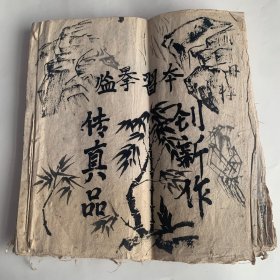 临摹習本
传真品
创新作